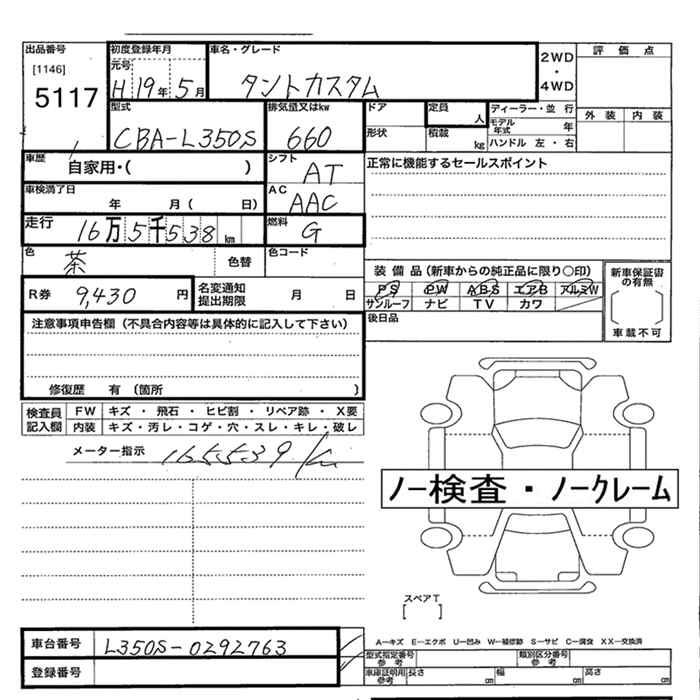 出品番号
[1146]
5117
初度登録年月
元号
H 19年 5月
車名・グレード
タントカスタム
2WD
・
4WD
評価点
外装 内装
型式
CBA-L350S
排気量又はkw
660
ドア
形状
定員
人
積載
kg
ディーラー・並行
モデル年式 年
ハンドル 左・右
車歴
自家用・( )
シフト
AT
正常に機能するセールスポイント
車検満了日
年 月( 日)
AC
AAC
走行
16万5千538km
燃料
G
色
茶
色替
色コード
R券 9,430円
名変通知
提出期限
月 日
装備品(新車からの純正品に限り○印)
PS PW ABS エアB アルミW
サンルーフ ナビ TV カワ
新車保証書
の有無
車載不可
後日品
注意事項申告欄(不具合内容等は具体的に記入して下さい)
修復歴 有 (箇所 )
検査員
記入欄
FW キズ・飛石・ヒビ割・リペア跡・X要
内装 キズ・汚レ・コゲ・穴・スレ・キレ・破レ
メーター指示
165539km
ノー検査・ノークレーム
スペアT
[ ]
車台番号
L350S-0292763
登録番号
A—キズ E—エクボ U—凹み W—補修跡 S—サビ C—腐食 XX—交換済
型式指定番号
参考
類別区分番号
参考
車庫証明用
参考
長さ cm
幅 cm
高さ cm